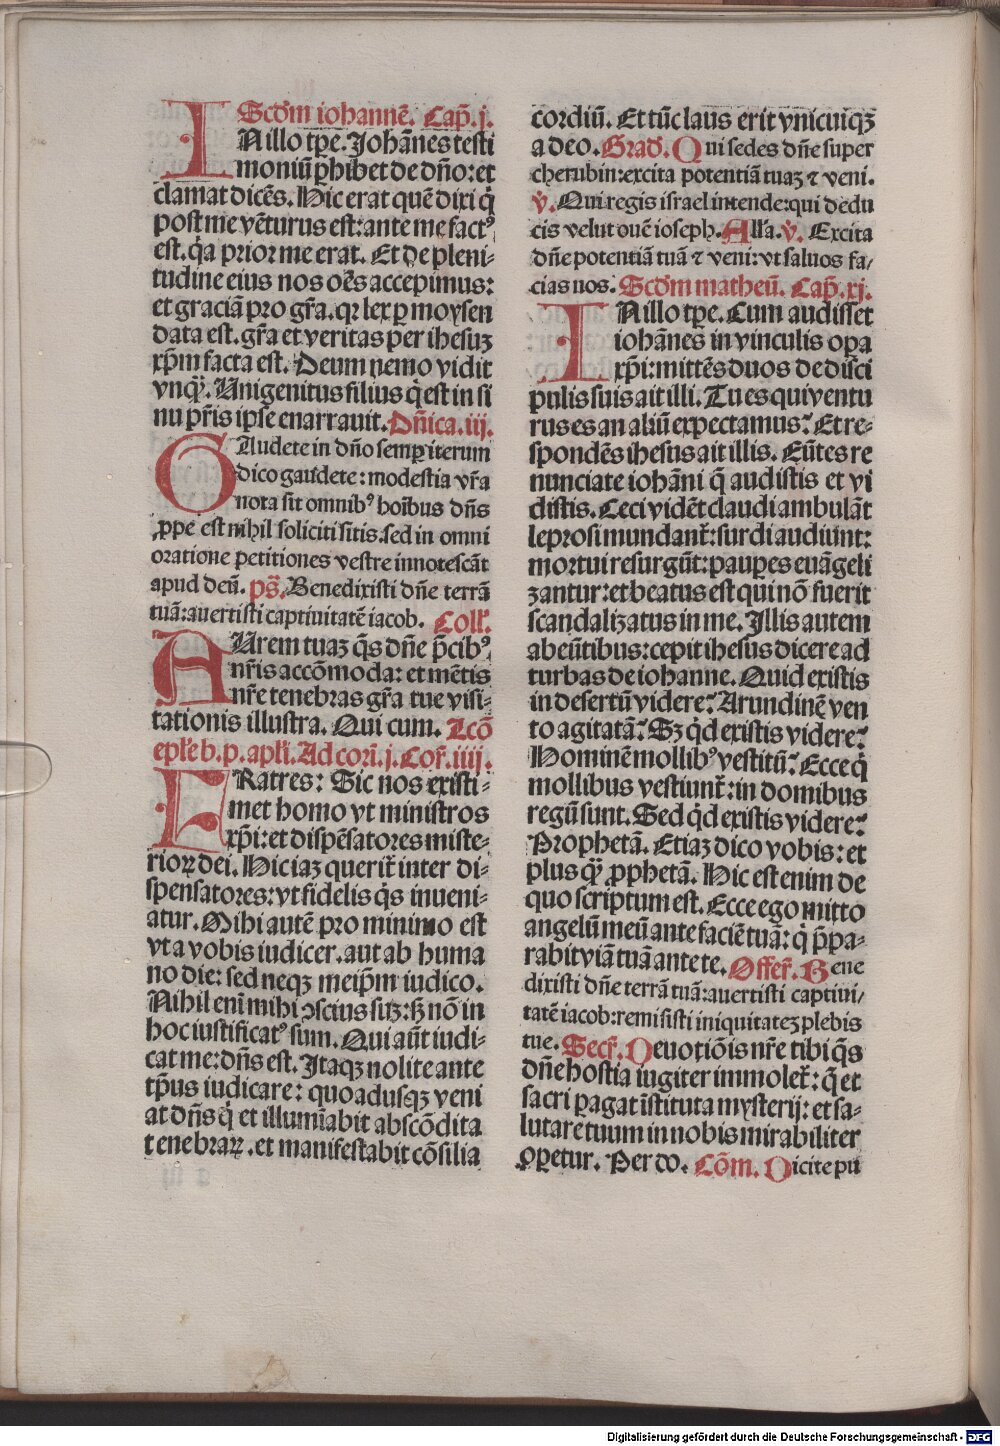 Scd̄m iohannē. Cap̄. j.
IN illo tp̄e. Johānes testi
moniū ꝑhibet de dn̄o: et
clamat dicēs. Hic erat quē dixi q̇
post me vēturus est: ante me fact⁹
est. q̇a prior me erat. Et de pleni-
tudine eius nos oēs accepimus:
et graciā pro gr̄a. qr lex ꝑ moysen
data est. gr̄a et veritas per ihesuꝫ
xp̄m facta est. Deum nemo vidit
vnq̄ꝫ. Unigenitus filius q̇ est in si
nu pr̄is ipse enarrauit. Dn̄ica. iij.
GAudete in dn̄o semꝑ iterum
dico gaudete: modestia vr̄a
nota sit omnib⁹ hoībus dn̄s
ꝓpe est nihil soliciti sitis. sed in omni
oratione petitiones vestre innotescāt
apud deū. ps̄. Benedixisti dn̄e terrā
tuā: auertisti captiuitatē iacob. Coll'.
AUrem tuaꝫ q̄s dn̄e p̄cib⁹
nr̄is accōmoda: et mētis
nr̄e tenebras gr̄a tue visi-
tationis illustra. Qui cum. Lcō
epl'e b. p. apl'i. Ad cori. j. Co. iiij.
FRatres: Sic nos existi-
met homo vt ministros
xp̄i: et dispēsatores miste-
rioꝝ dei. Hic iaꝫ querit̄ inter di-
spensatores: vt fidelis q̇s inueni-
atur. Mihi autē pro minimo est
vt a vobis iudicer. aut ab huma
no die: sed neqꝫ meip̄m iudico.
Nihil eni mihi ꝯscius suꝫ: sꝫ nō in
hoc iustificat⁹ sum. Qui aūt iudi-
cat me: dn̄s est. Itaqꝫ nolite ante
tp̄us iudicare: quoadusqꝫ veni
at dn̄s q̇ et illumīabit abscōdita
tenebraꝝ. et manifestabit cōsilia
cordiū. Et tūc laus erit vnicuiqꝫ
a deo. Grad̄. Qui sedes dn̄e super
cherubin: excita potentiā tuaꝫ ⁊ veni.
v̇. Qui regis israel intende: qui dedu
cis velut ouē ioseph. All'a. v̇. Excita
dn̄e potentiā tuā ⁊ veni: vt saluos fa/
cias nos. Scd̄m matheū. Cap̄. xj.
IN illo tp̄e. Cum audisset
iohānes in vinculis opa
xp̄i: mittēs duos de disci
pulis suis ait illi. Tu es qui ventu
rus es an aliū expectamus? Et re-
spondēs ihesus ait illis. Eūtes re
nunciate iohāni q̄ audistis et vi
distis. Ceci vidēt claudi ambulāt
leprosi mundant̄: surdi audiunt:
mortui resurgūt: pauꝑes euāgeli
zantur: et beatus est qui nō fuerit
scandalizatus in me. Illis autem
abeūtibus: cepit ihesus dicere ad
turbas de iohanne. Quid existis
in desertū videre? Arundinē ven
to agitatā? Sꝫ q̇d existis videre?
Hominē mollib⁹ vestitū? Ecce q̇
mollibus vestiunt̄: in domibus
regū sunt. Sed q̇d existis videre?
Prophetā. Etiaꝫ dico vobis: et
plus q̄ꝫ ꝓphetā. Hic est enim de
quo scriptum est. Ecce ego mitto
angelū meū ante faciē tuā: q̇ p̄pa-
rabit viā tuā ante te. Offer̄. Bene
dixisti dn̄e terrā tuā: auertisti captiui/
tatē iacob: remisisti iniquitateꝫ plebis
tue. Secr̄. Deuotiōis nr̄e tibi q̄s
dn̄e hostia iugiter immolet̄: q̄ et
sacri ꝑagat īstituta mysterij: et sa-
lutare tuum in nobis mirabiliter
oꝑetur. Per do. Cōm. Dicite pu
Digitalisierung gefördert durch die Deutsche Forschungsgemeinschaft - DFG